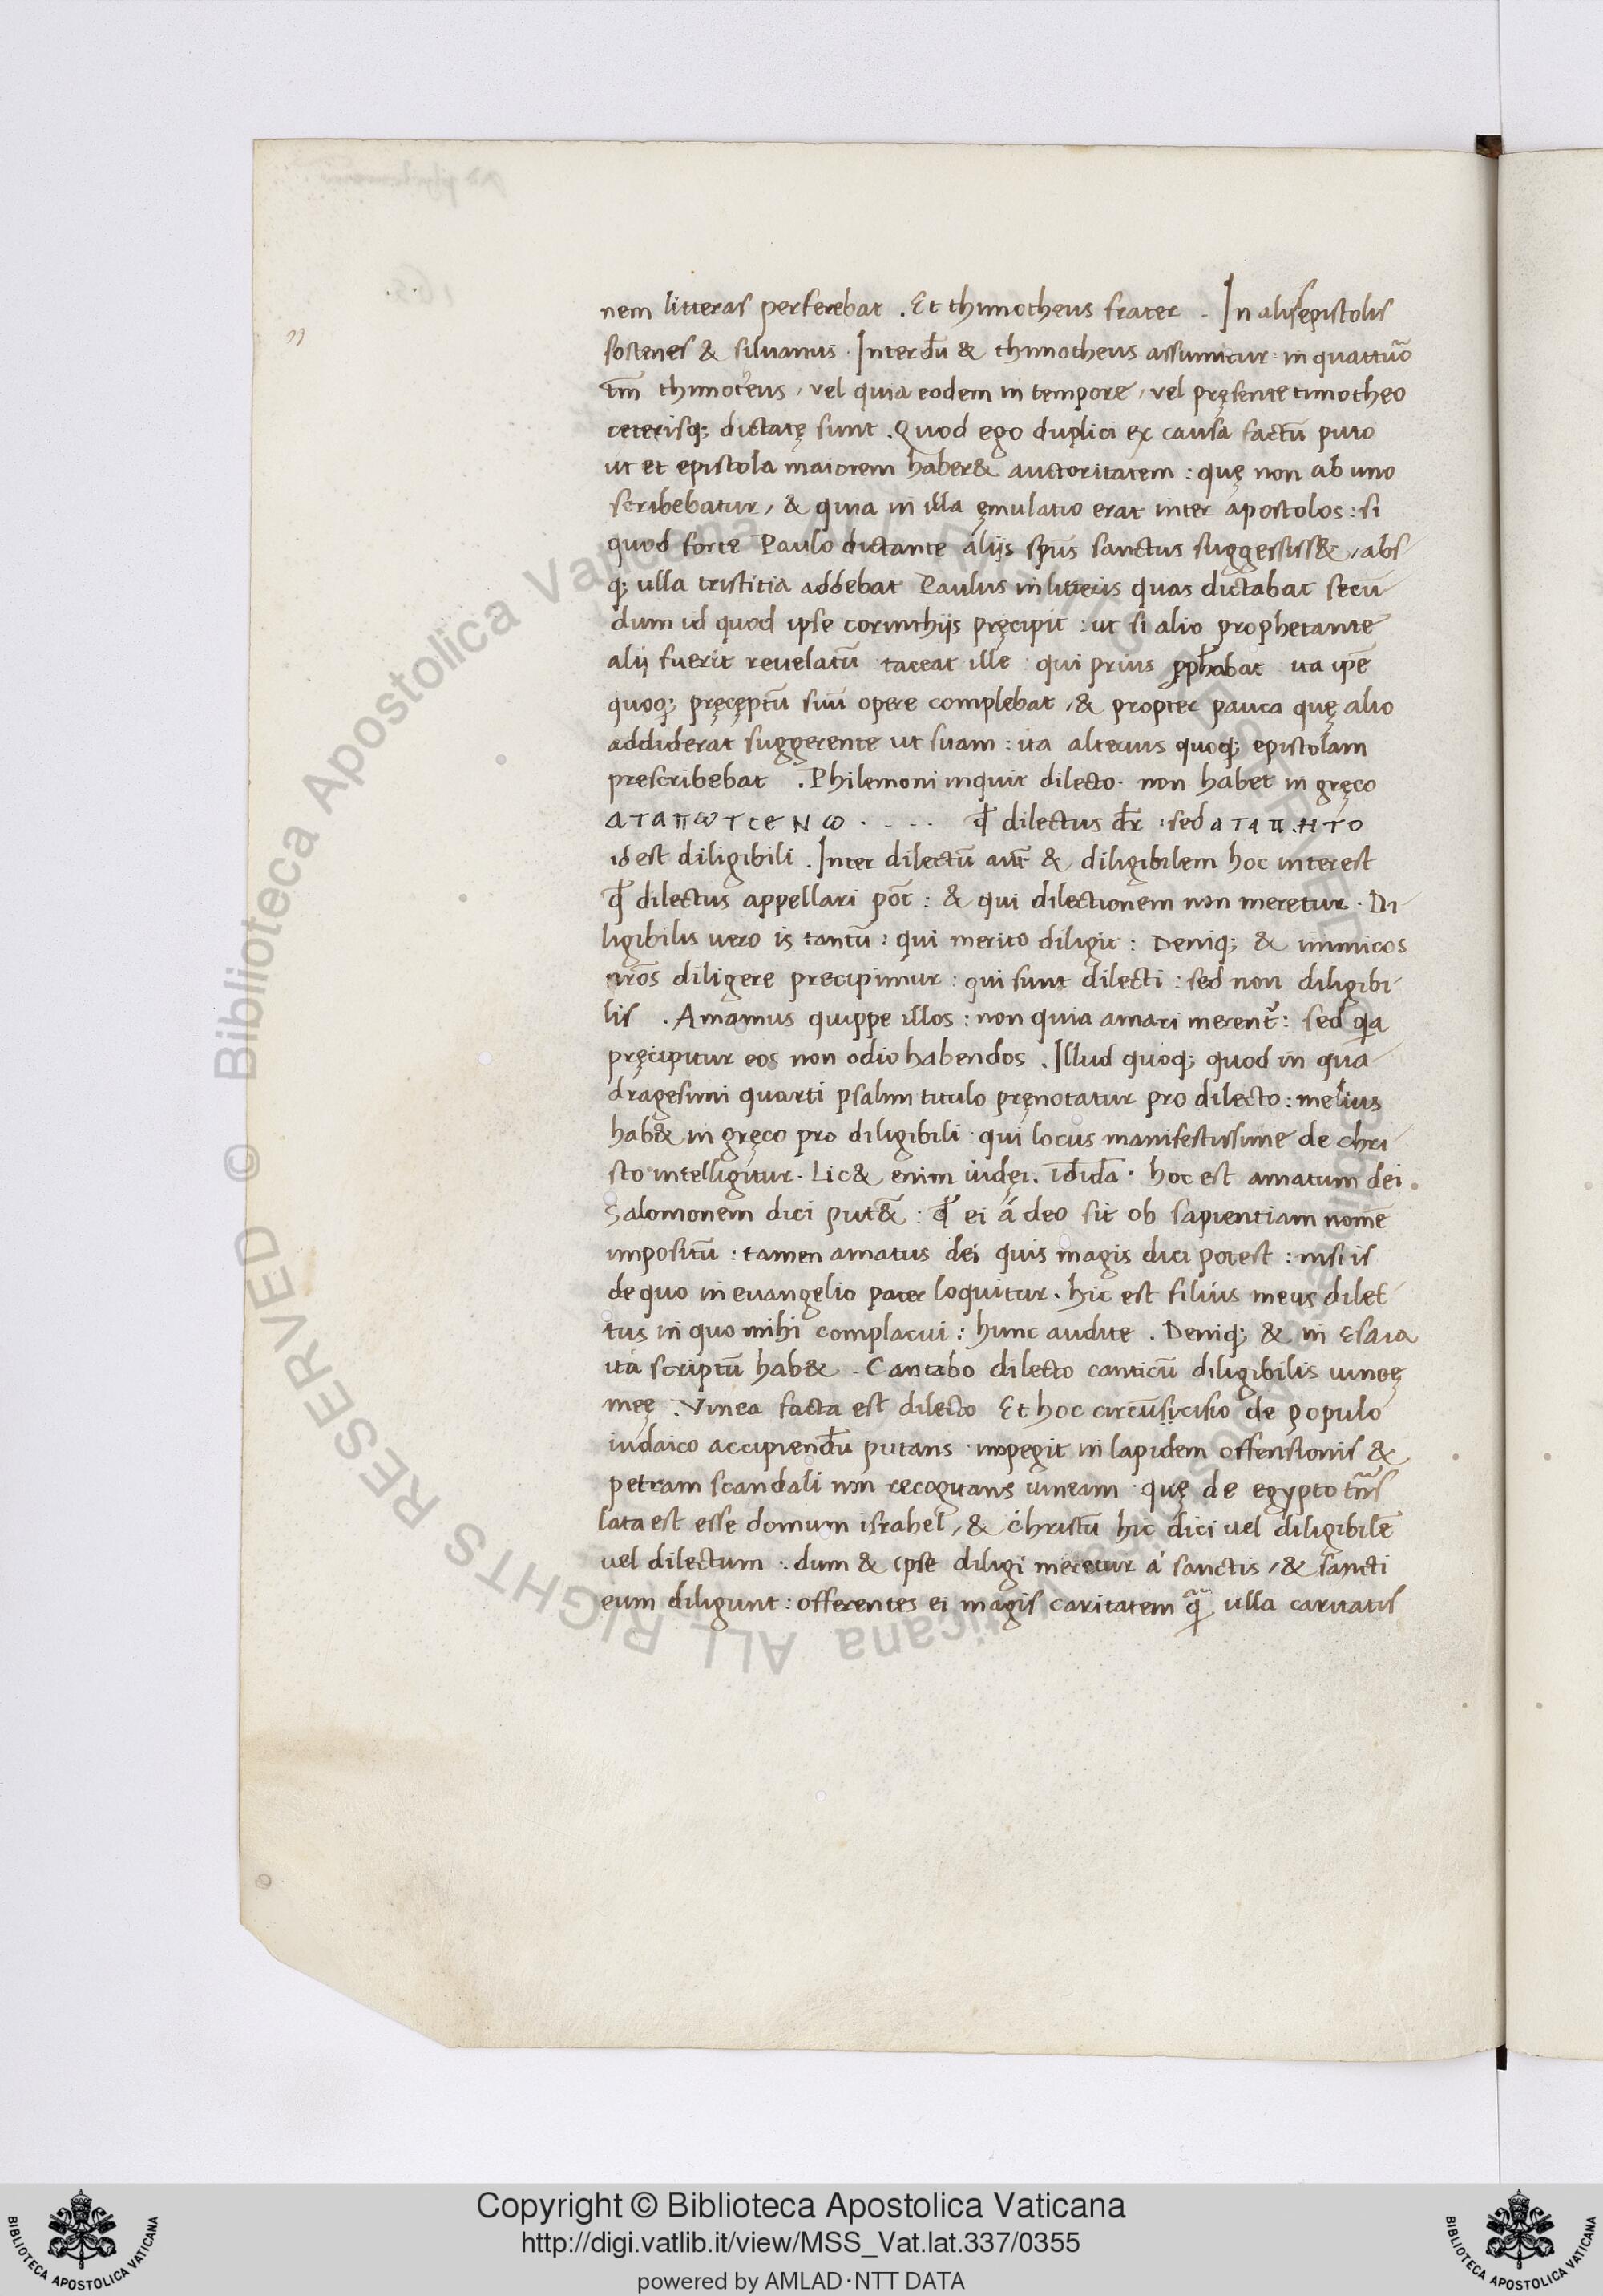 nem litteras perferebat . Et thimotheus frater . In alijs epistolis
sostenes & siluanus . Interdū & thimotheus assumitur : in quattuor
tm̄ thimoteus , vel quia eodem in tempore , vel pręsente timotheo
ceterisq; dictatę sunt . Quod ego duplici ex causa factū puto
ut et epistola maiorem haber& auctoritatem : quę non ab uno
scribebatur , & quia in illa ęmulatio erat inter apostolos : si
quod forte Paulo dictante álijs sp̄us sanctus suggessiss& , abs
q; ulla tristitia addebat Paulus in litteris quas dictabat secū
dum id quod ipse corinthijs pręcipit : ut si alio prophetante
alij fuerit reuelatū taceat ille qui prius ꝓph̄abat ita ip̄e
quoq; pręcęptū suū opere complebat , & propter pauca quę alio
addiderat suggerente ut suam : ita alterius quoq; epistolam
prescribebat . Philemoni inquit dilecto . non habet in gręco
ΑΤΑΠωΤCΕΝω . . . . . qđ dilectus dr̄ : sed ΑΤΑΠ.ΗΤΟ
id est diligibili . Inter dilectū aut̄ & diligibilem hoc interest
qđ dilectus appellari pot̄ : & qui dilectionem non meretur . Di
ligibilis uero is tantū : qui merito diligit : Deniq; & inimicos
nr̄os diligere precipimur : qui sunt dilecti : sed non diligibi
lis . Amamus quippe illos : non quia amari merent̄ : sed qa
pręcipitur eos non odio habendos . Illud quoq; quod in qua
dragesimi quarti psalmi titulo pręnotatur pro dilecto : melius
hab& in gręco pro diligibili : qui locus manifestissime de chri
sto intelligitur . Lic& enim iudęi . īdīda . hoc est amatum dei .
Salomonem dici put& : qđ ei á deo sit ob sapientiam nomē
impositū : tamen amatus dei quis magis dici potest : nisi is
de quo in euangelio pater loquitur . hic est filius meus dilec
tus in quo mihi complacui : hunc audite . Deniq; & in Esaia
ita scriptū hab& . Cantabo dilecto canticū diligibilis uineę
meę . Vinea facta est dilecto Et hoc circūsicisio de populo
iudaico accipiendū putans . impegit in lapidem offensionis &
petram scandali non recogitans uineam . quę de egypto trās
lata est esse domum israhel , & christū hic dici uel diligibilē
uel dilectum . dum & ipse diligi meretur á sanctis , & sancti
eum diligunt : offerentes ei magis caritatem q̄ ulla caritatis
© Biblioteca Apostolica Vaticana ALL RIGHTS RESERVED
Copyright © Biblioteca Apostolica Vaticana
http://digi.vatlib.it/view/MSS_Vat.lat.337/0355
powered by AMLAD·NTT DATA
BIBLIOTECA APOSTOLICA VATICANA
BIBLIOTECA APOSTOLICA VATICANA